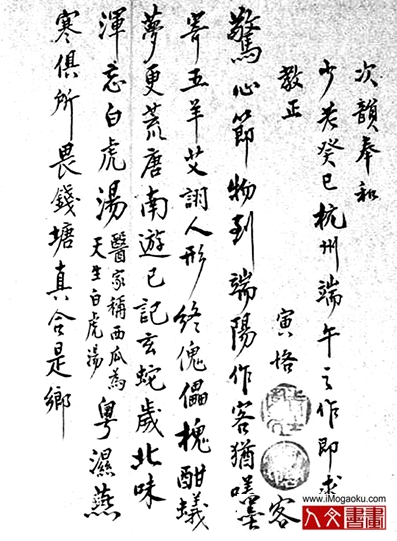 次韻奉和
少老癸巳杭州端午之作即求
教正
寅恪
驚心節物到端陽作客猶嗟
客
寄五羊艾詡人形終傀儡槐酣蟻
夢更荒唐南遊已記玄蛇歲北味
渾忘白虎湯
醫家稱西瓜為
天生白虎湯
粵濕燕
寒俱所畏錢塘真合是鄉
www.iMogaoku.com
人文書畫